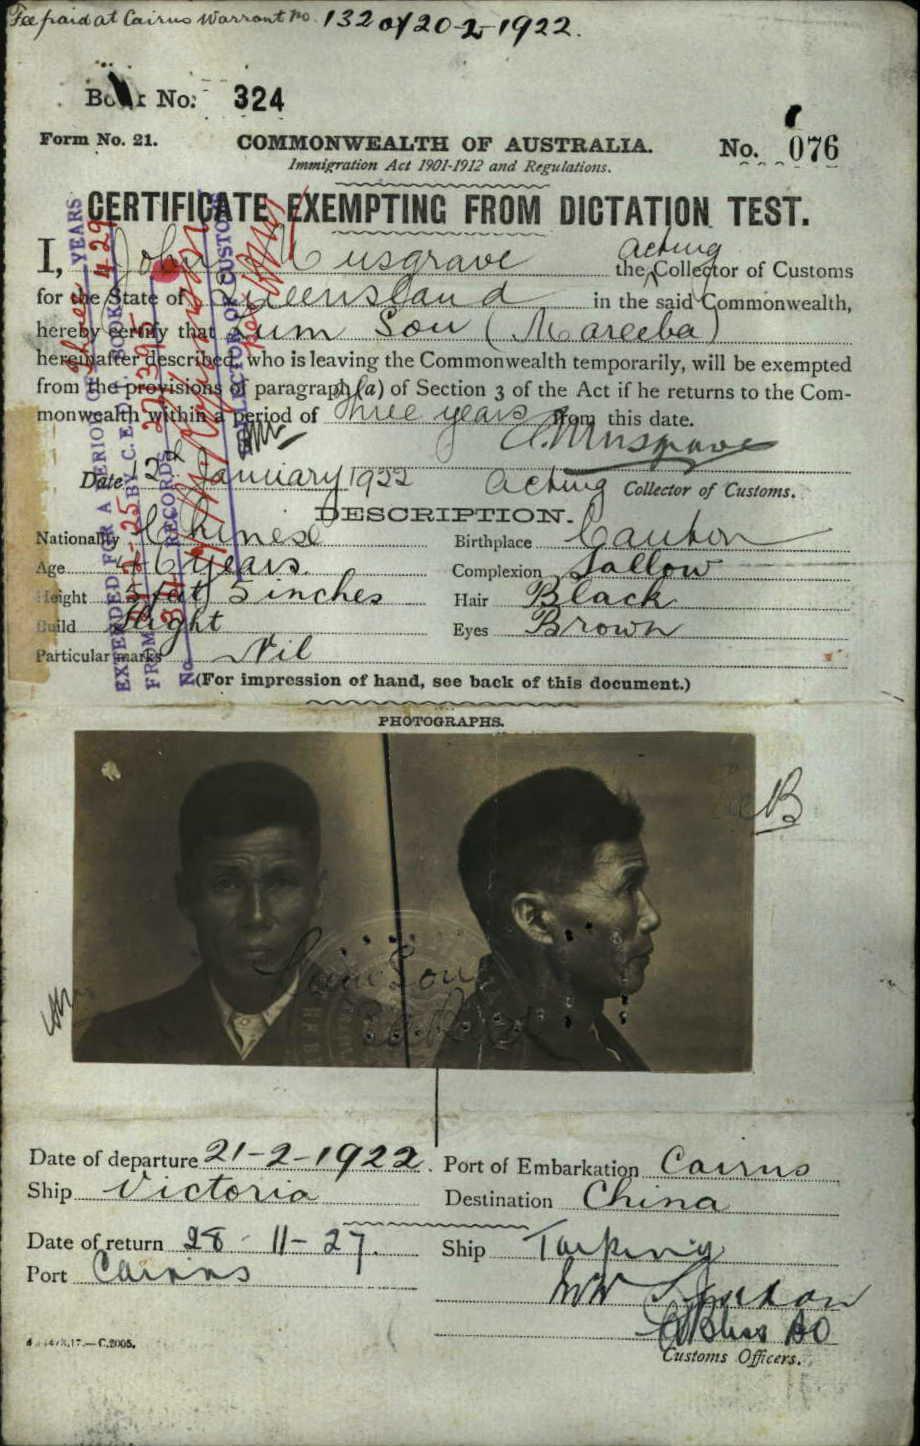 Fee paid at Cairns Warrant No. 132 of 20-2-1922.
Book No. 324
Form No. 21.
COMMONWEALTH OF AUSTRALIA.
No. 076
Immigration Act 1901-1912 and Regulations.
CERTIFICATE EXEMPTING FROM DICTATION TEST.
I, John Musgrave the acting Collector of Customs
for the State of Queensland in the said Commonwealth,
hereby certify that Lum Sou (Mareeba)
hereinafter described, who is leaving the Commonwealth temporarily, will be exempted
from the provisions of paragraph (a) of Section 3 of the Act if he returns to the Com-
monwealth within a period of Three years from this date.
Musgrave
Date 12th January 1922
Acting Collector of Customs.
DESCRIPTION.
Nationality Chinese
Birthplace Canton
Age 46 years.
Complexion Sallow
Height 5 feet 5 inches
Hair Black
Build Slight
Eyes Brown
Particular marks Nil
(For impression of hand, see back of this document.)
EXTENDED FOR A PERIOD OF three YEARS
FROM 25 BY C.E.D.T. BOOK 429
No. RECORDS
COLLECTOR OF CUSTOMS
PHOTOGRAPHS.
Lum Sou
Date of departure 21-2-1922.
Port of Embarkation Cairns
Ship Victoria
Destination China
Date of return 28-11-27.
Ship Taiping
Port Cairns
Customs Officers.
C.2005.